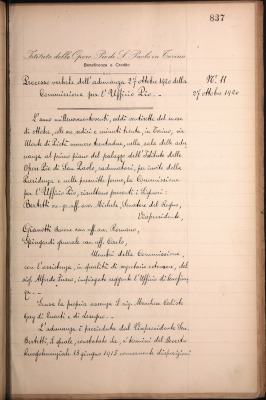 837
Istituto delle Opere Pie di S. Paolo in Torino
Beneficenza e Credito
Processo verbale dell'adunanza 27 Ottobre 1920 della
Commissione per l'Ufficio Pio.
N. 11
27 ottobre 1920
L'anno millenovecentoventi, addì ventisette del mese
di ottobre, alle ore sedici e minuti trenta, in Torino, via
Monte di Pietà numero trentadue, nella sala delle adu
nanze al primo piano del palazzo dell'Istituto delle
Opere Pie di San Paolo, radunatasi, per invito della
Presidenza e nelle prescritte forme, la Commissione
per l'Ufficio Pio, risultano presenti i Signori:
Bertetti gr. uff. avv. Michele, Senatore del Regno,
Vicepresidente,
Gianotti Barone conf. avv. Romano,
generale cav. uff. Carlo,
Membri della Commissione,
con l'assistenza, in qualità di segretario estensore, del
sig. Alfredo impiegato presso l'Ufficio di
Scusa la propria assenza il sig. Marchese Calisto
Gay di Quarti e di
L'adunanza è presieduta dal Vicepresidente Sen.
Bertetti, il quale, constatato che, a termini del Decreto
Luogotenenziale 13 giugno 1915 concernente disposizioni